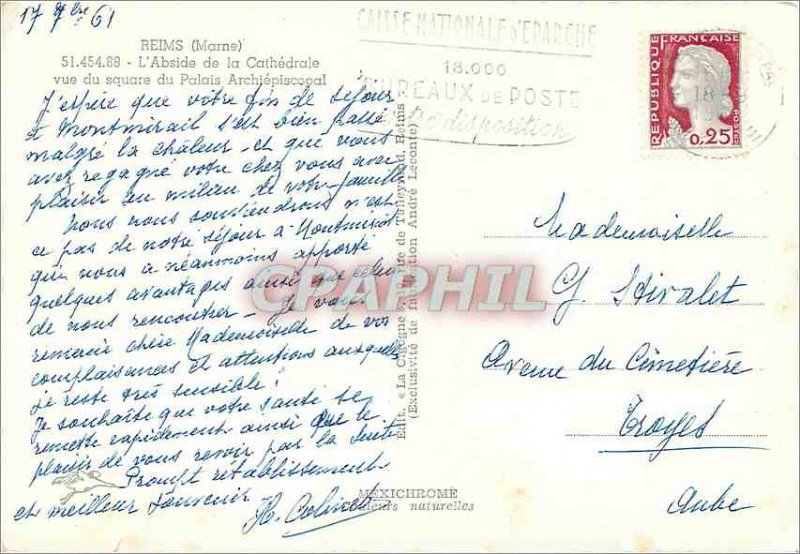 17 7bre 61
REIMS (Marne)
51.454.88 - L'Abside de la Cathédrale
vue du square du Palais Archiépiscopal
J'espère que votre fin de séjour
à Montmirail s'est bien passé
malgré la chaleur et que vous
avez regagné votre chez vous avec
plaisir au milieu de votre famille
Nous nous souviendrons n'est
ce pas de notre séjour à Montmirail
qui nous a néanmoins apporté
quelques avantages ainsi que celui
de nous rencontrer - Je vous
remercie chère Mademoiselle de vos
complaisances et attentions auxquelles
je reste très sensible !
Je souhaite que votre santé se
remette rapidement ainsi que le
plaisir de vous revoir par la suite
Prompt rétablissement
et meilleur souvenir
Edit. « La Cigogne », rue de Talleyrand, Reims
(Exclusivité de la Collection André Leconte)
MEXICHROME
Couleurs naturelles
CAISSE NATIONALE D'EPARGNE
18.000
BUREAUX DE POSTE
à votre disposition
REPUBLIQUE FRANÇAISE
0,25
POSTES
CPAPHIL
Mademoiselle
Avenue du Cimetière
Troyes
Aube